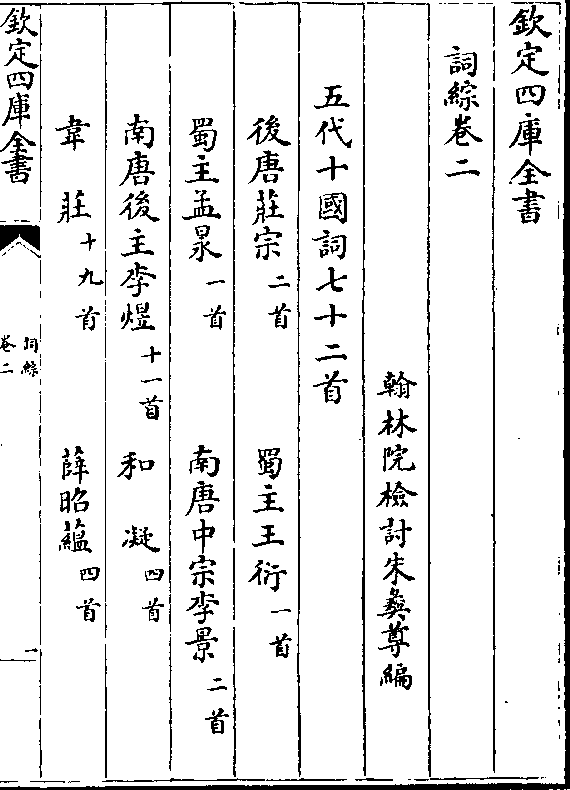 欽定四庫全書
詞綜卷二
翰林院檢討朱彝尊編
五代十國詞七十二首
後唐莊宗二首　蜀主王衍一首
蜀主孟昶一首　南唐中宗李景二首
南唐後主李煜十一首　和凝四首
韋莊十九首　薛昭蘊四首
欽定四庫全書
詞綜
卷二
一